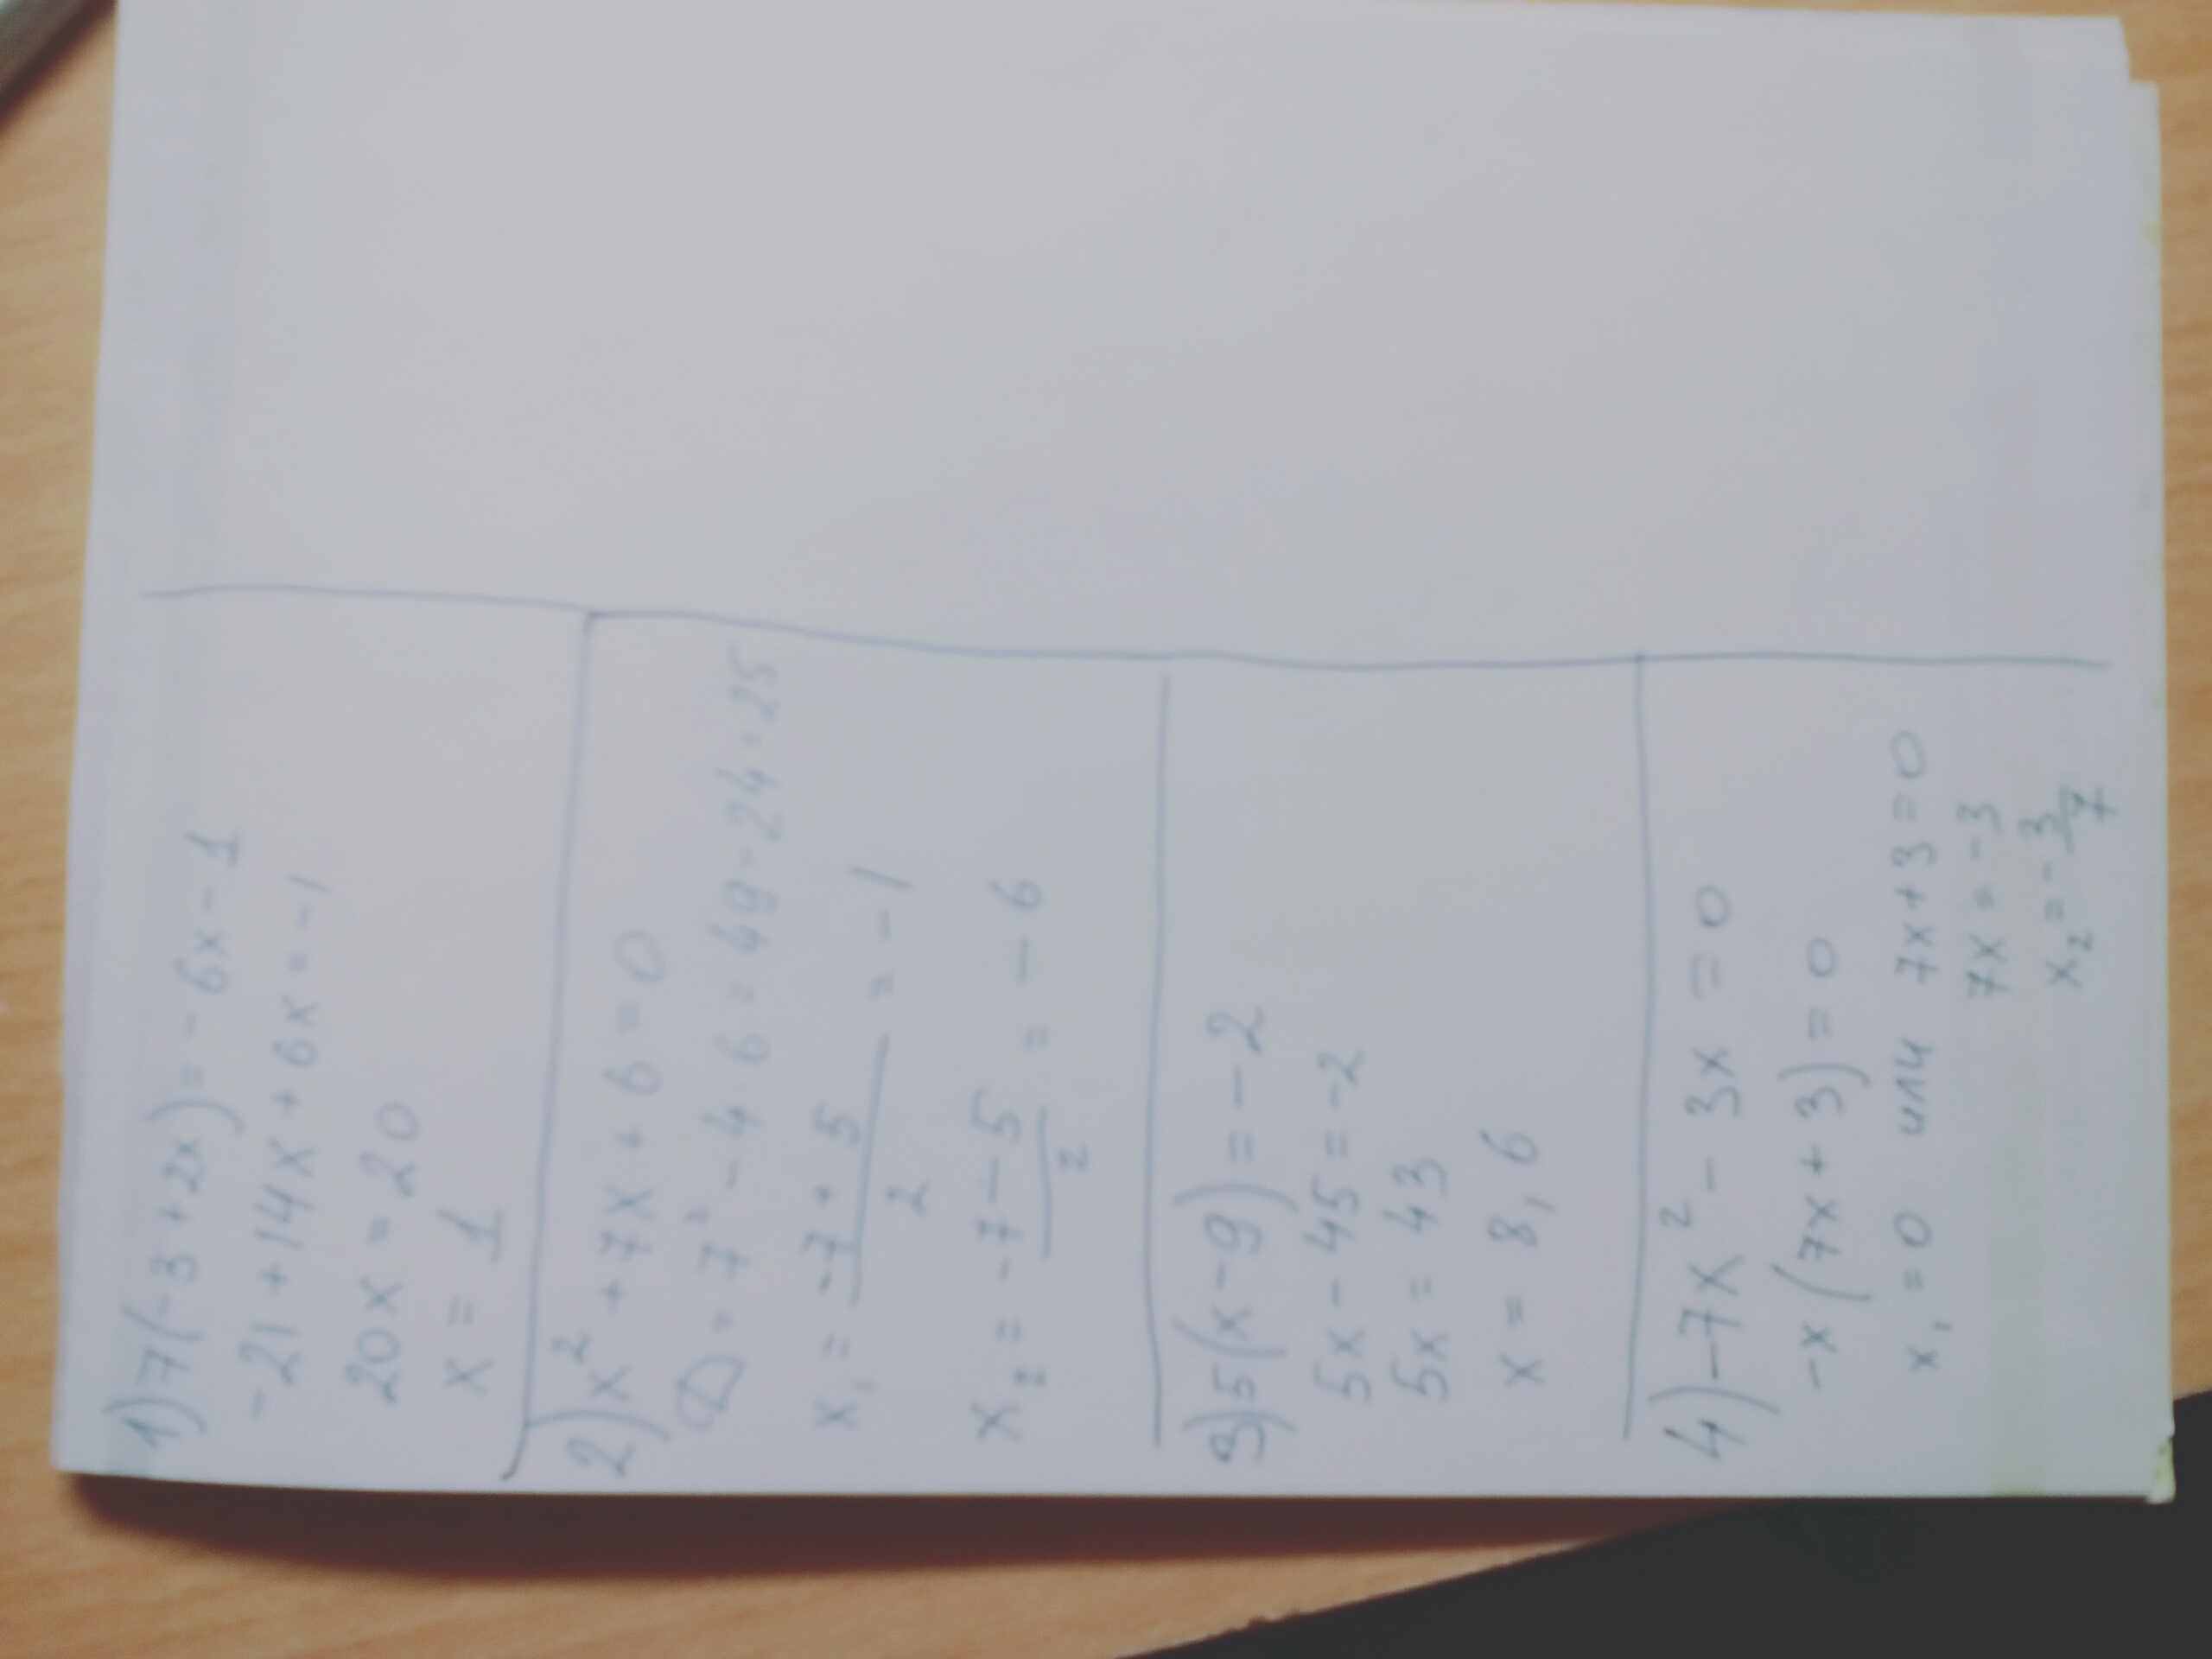 1) 7(-3+2x)=-6x-1
-21+14x+6x=-1
20x=20
x=1
2) x²+7x+6=0
D=7²-4·6=49-24=25
x₁=(-7+5)/2=-1
x₂=(-7-5)/2=-6
3) 5(x-9)=-2
5x-45=-2
5x=43
x=8,6
4) -7x²-3x=0
-x(7x+3)=0
x₁=0 или 7x+3=0
7x=-3
x₂=-3/7